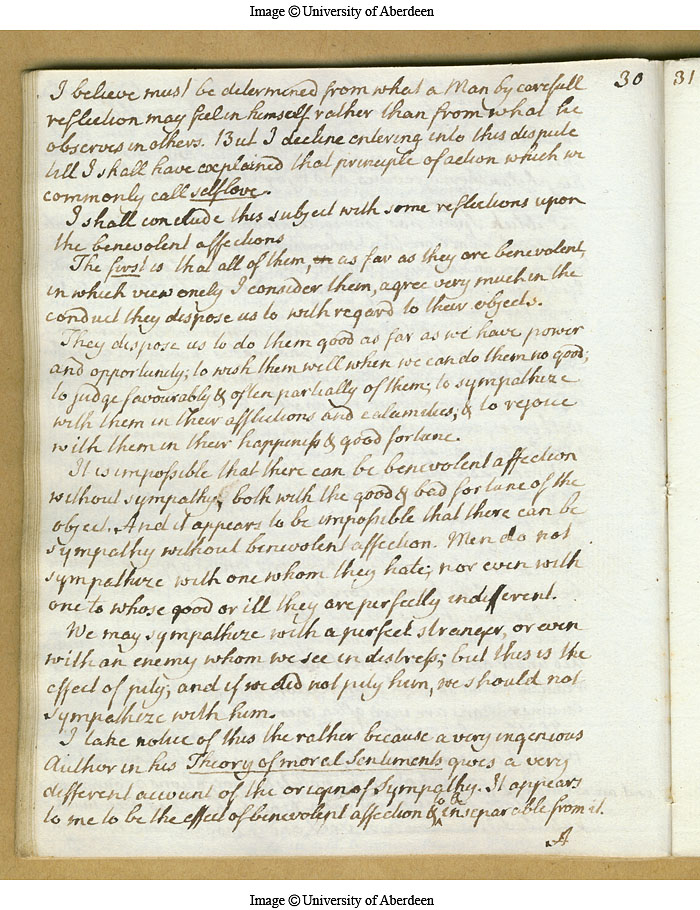 Image © University of Aberdeen
30
31
I believe must be determined from what a Man by carefull
reflection may feel in himself rather than from what he
observes in others. But I decline entering into this dispute
till I shall have explained that principle of action which we
commonly call selflove.
I shall conclude this subject with some reflections upon
the benevolent affections
The first is that all of them, as far as they are benevolent,
in which view onely I consider them, agree very much in the
conduct they dispose us to with regard to their objects.
They dispose us to do them good as far as we have power
and opportunity; to wish them well when we can do them no good;
to judge favourably & often partially of them; to sympathize
with them in their afflictions and calamities; & to rejoice
with them in their happiness & good fortune.
It is impossible that there can be benevolent affection
without sympathy, both with the good & bad fortune of the
object. And it appears to be impossible that there can be
sympathy without benevolent affection. Men do not
sympathize with one whom they hate; nor even with
one to whose good or ill they are perfectly indifferent.
We may sympathize with a perfect stranger, or even
with an enemy whom we see in distress; but this is the
effect of pity; and if we did not pity him, we should not
sympathize with him.
I take notice of this the rather because a very ingenious
Author in his Theory of moral Sentiments gives a very
different account of the origin of Sympathy. It appears
to me to be the effect of benevolent affection & to be inseparable from it.
A
Image © University of Aberdeen